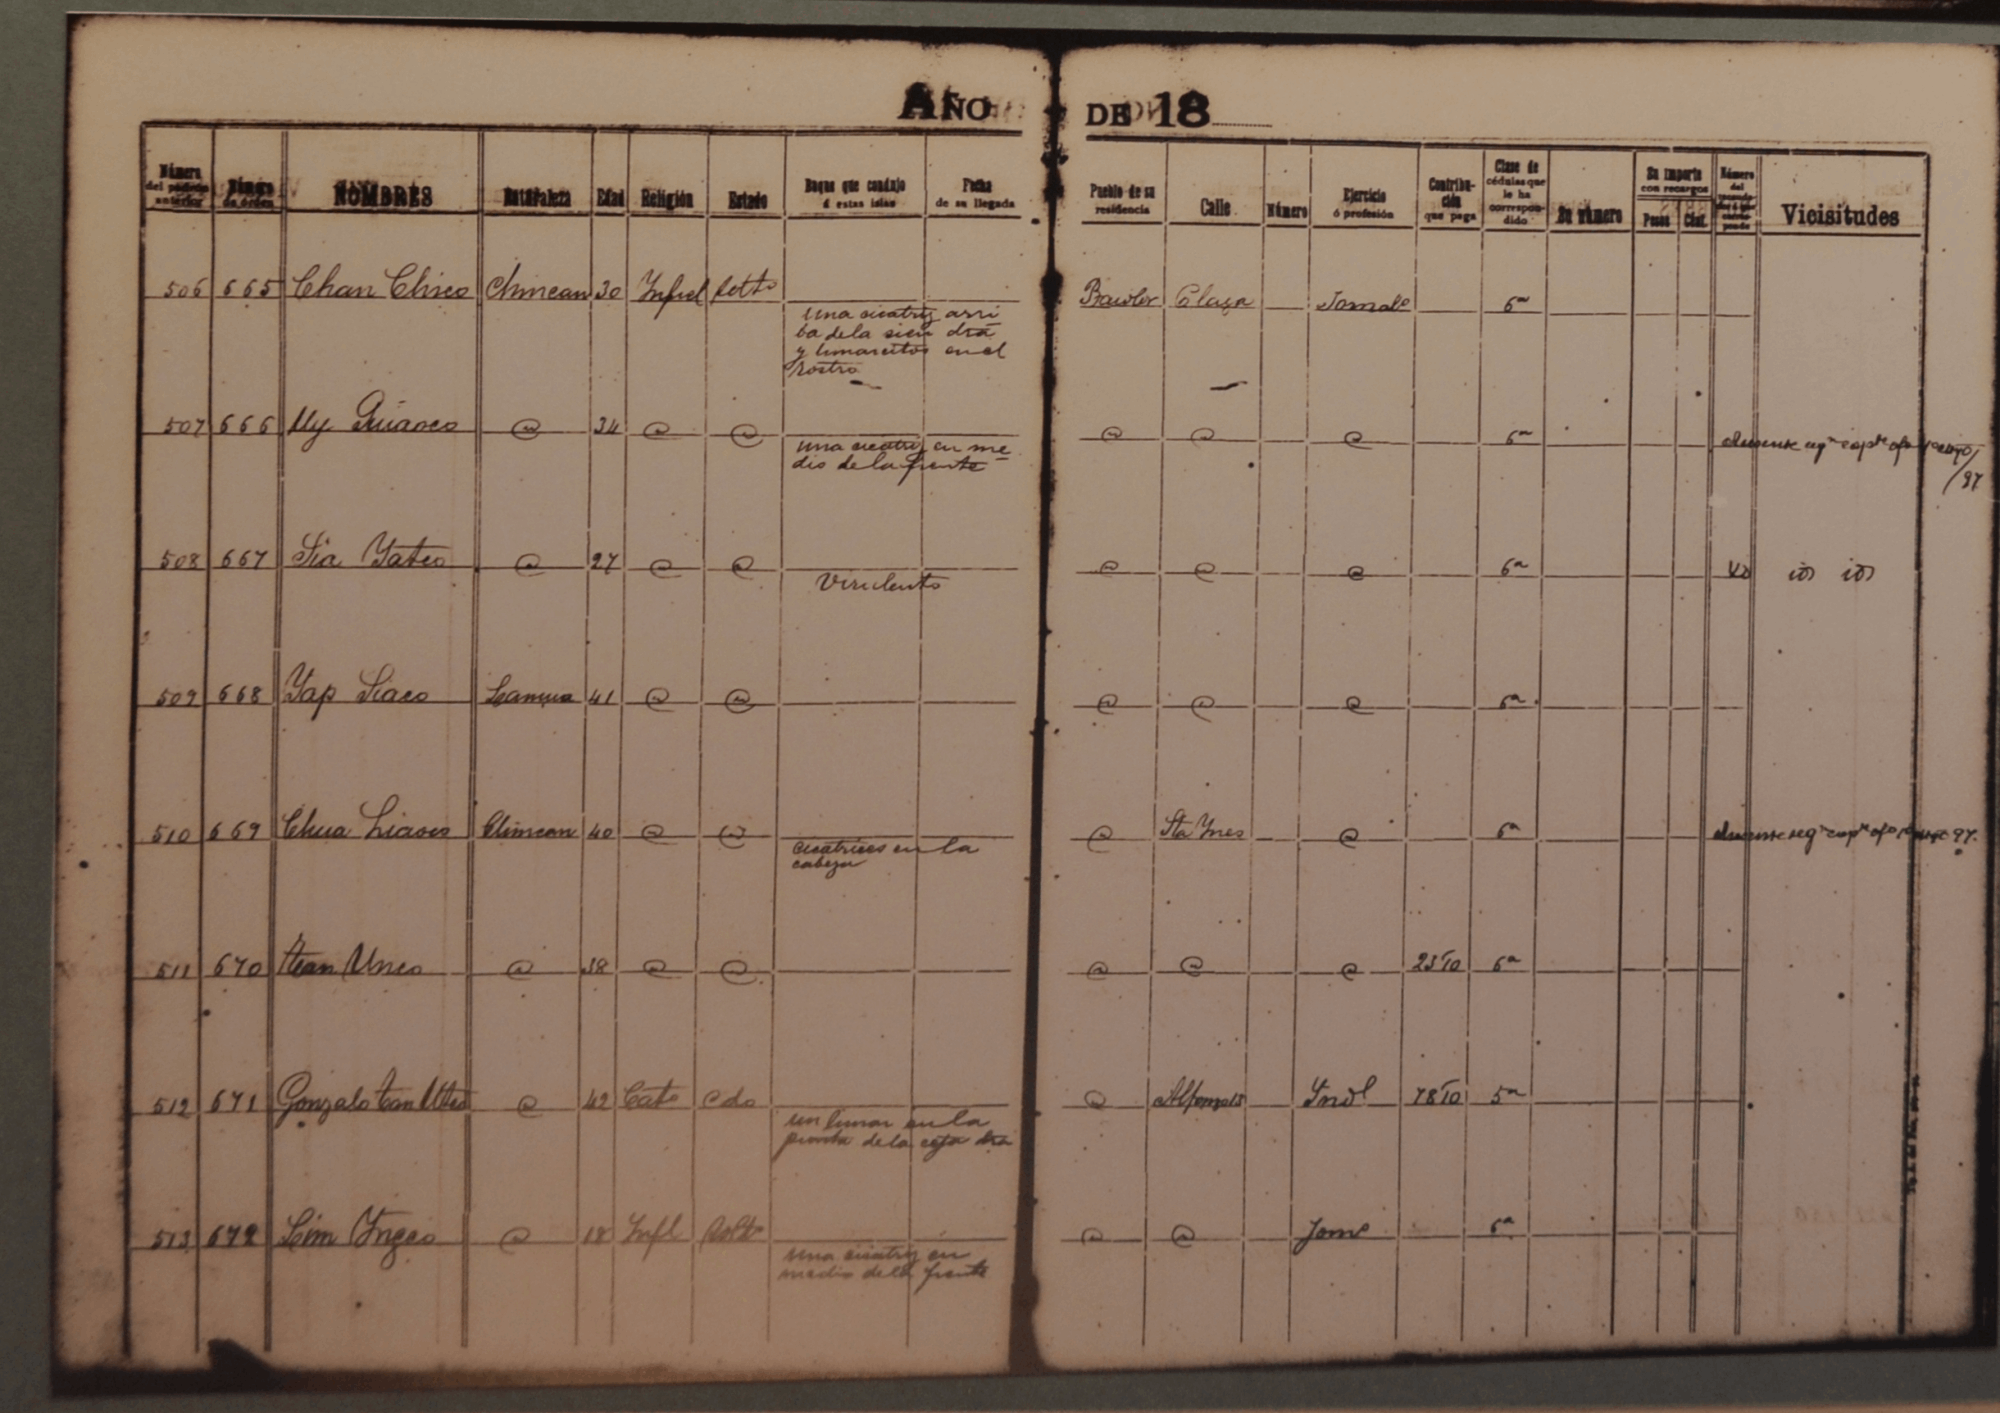 AÑO DE 18
Número del padrón anterior Número de órden NOMBRES Naturaleza Edad Religión Estado Buque que condujo á estas islas Fecha de su llegada Pueblo de su residencia Calle Número Ejercicio ó profesión Contribución que paga Clase de cédulas que le ha correspondido Su número Su importe con recargos Pesos Cént. Número del Vicisitudes
506 665 Chan Chico Chincan 30 Infiel Plaza 6ª
una cicatriz arri
ba de la sien dra
y lunarcitos en el
rostro
507 666 Uy @ 34 @ @ @ @ @ 6ª
/97
una cicatriz en me
dio de la frente
508 667 Sia Yatco @ 27 @ @ @ @ @ 6ª id id
Virulento
509 668 Yap Siaco 41 @ @ @ @ @ 6ª
510 669 Chua Liaoco Chincan 40 @ @ @ Sta Ynes @ 6ª 97.
cicatrices en la
cabeza
511 670 Tean Unco @ 38 @ @ @ @ @ 23 10 6ª
512 671 Gonzalo Tan @ 42 Cato Cdo @ Alfonso 13 Yndl 78 10 5ª
un lunar en la
punta de la ceja dra
513 672 Lim @ 18 Infl Solto @ @ Jorno 6ª
una cicatriz en
medio de la frente